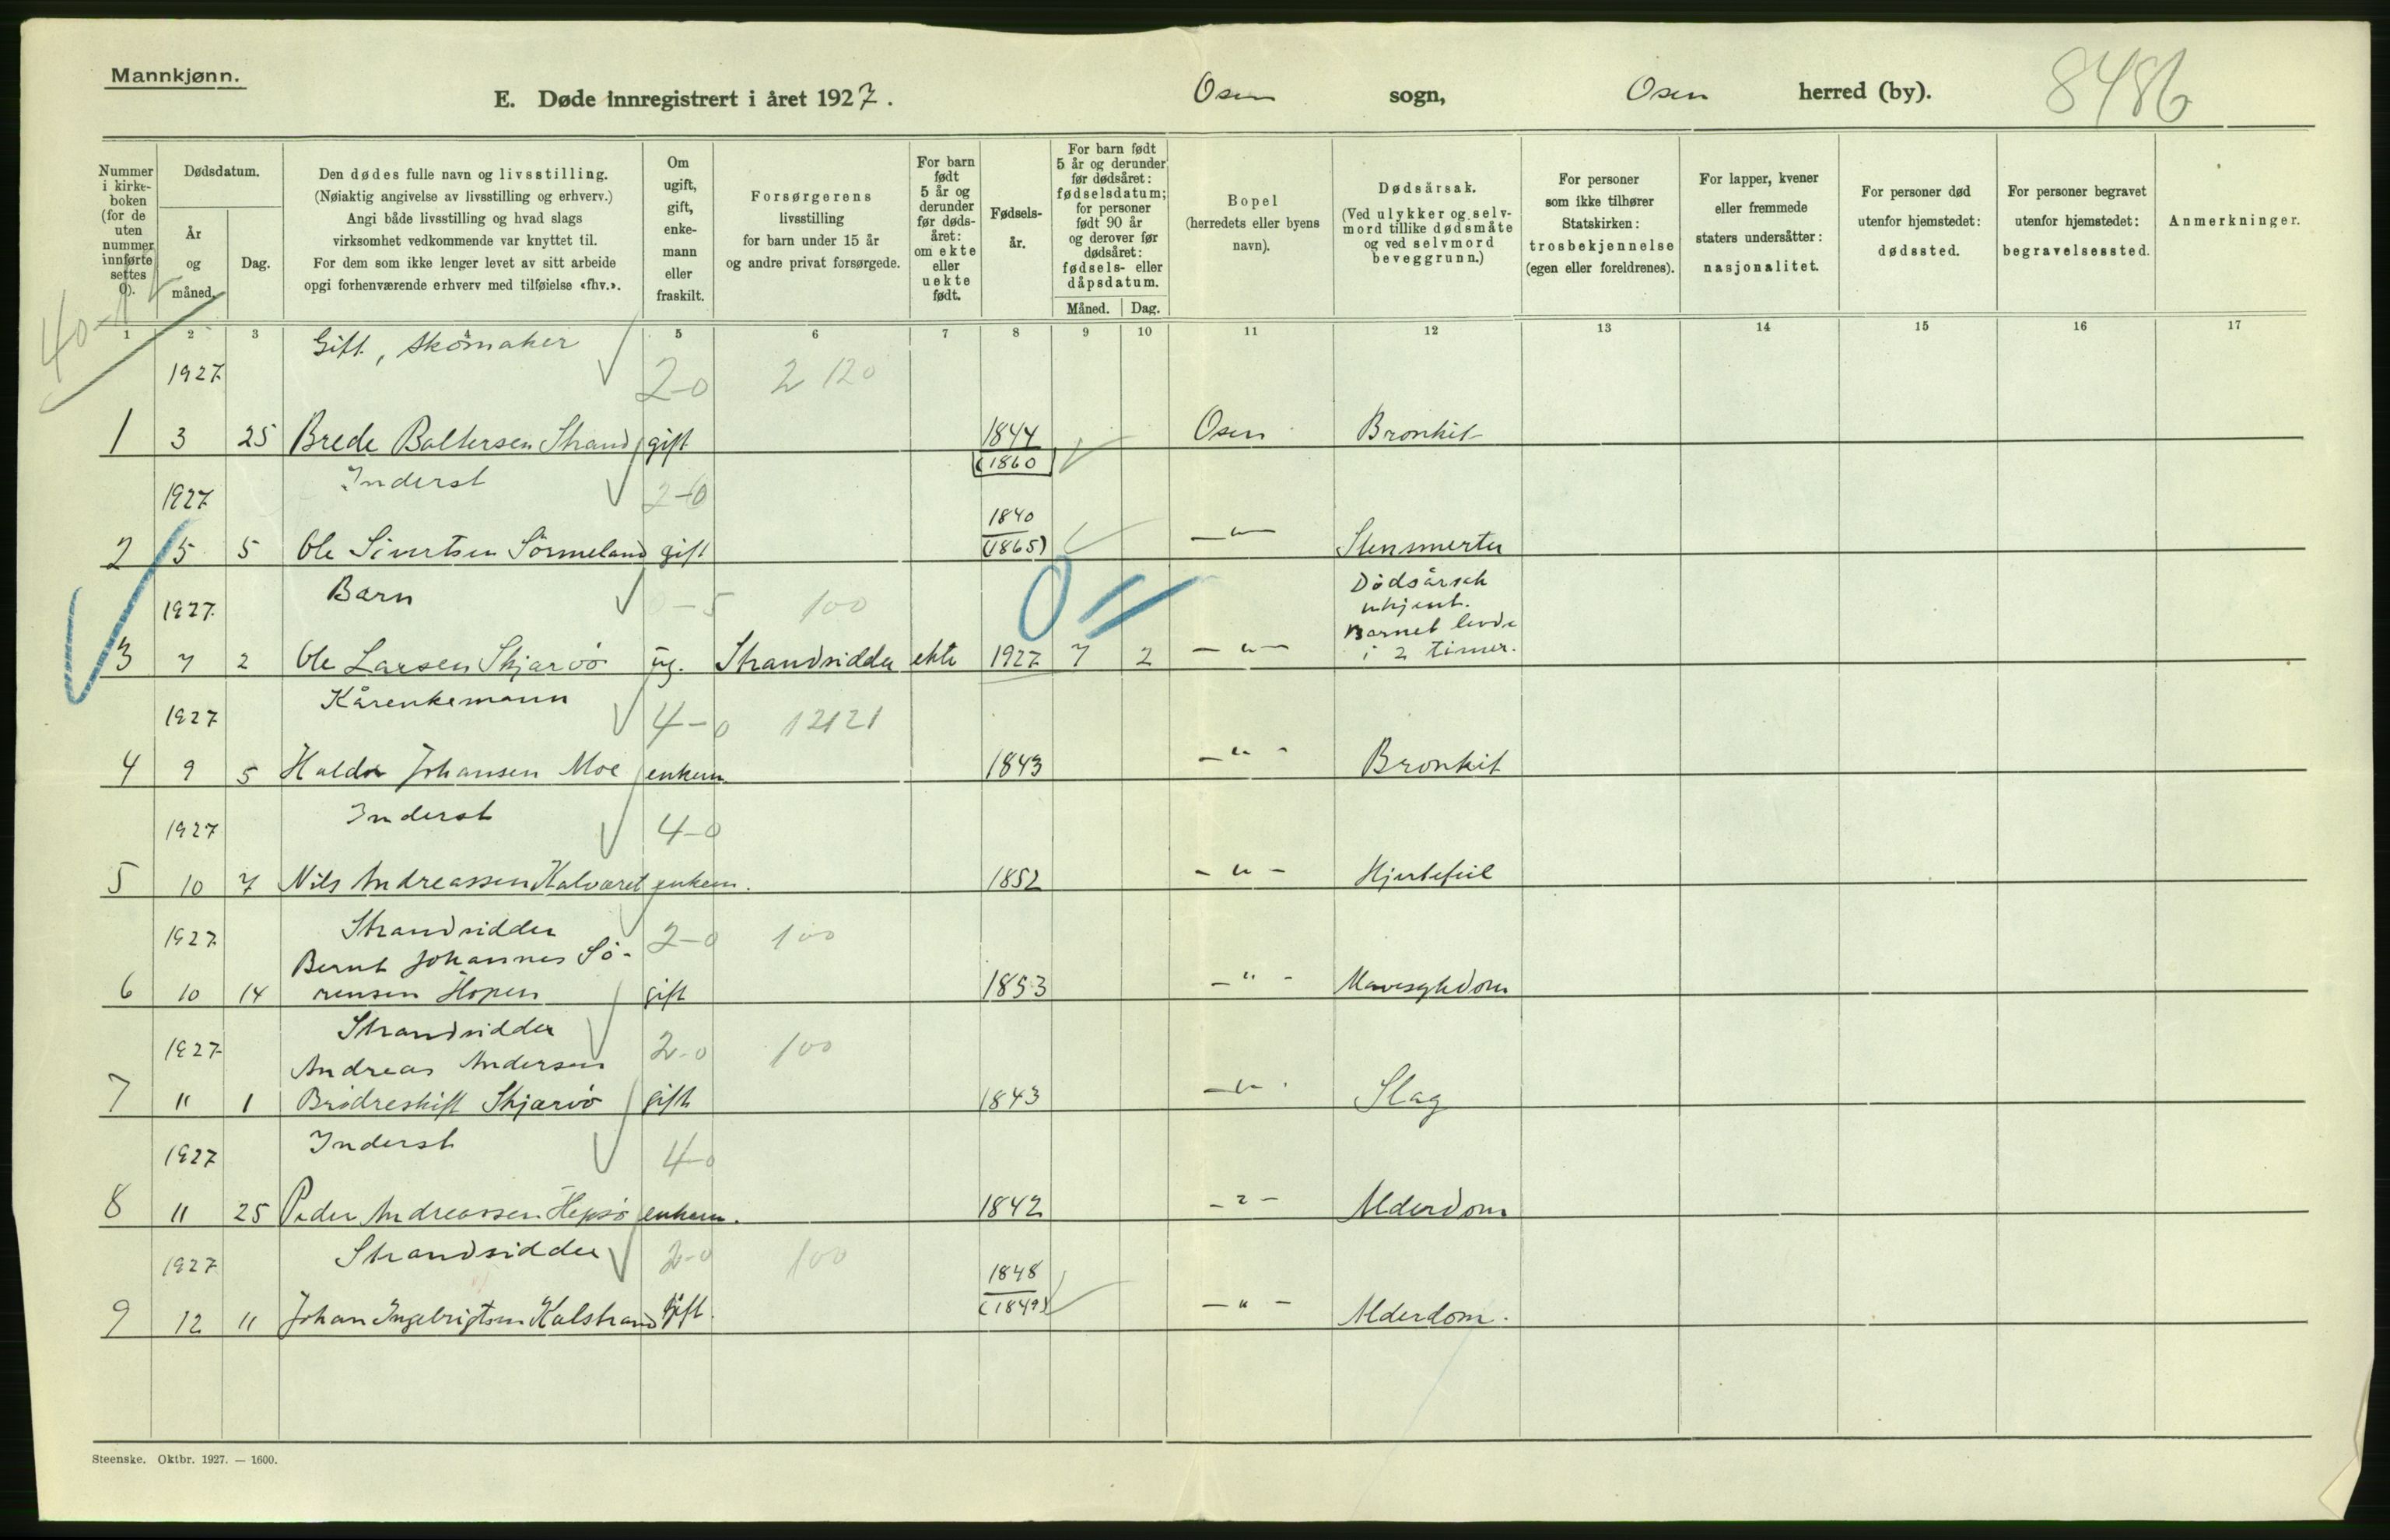 Mannkjønn.
E. Døde innregistrert i året 1927. Osen sogn, Osen herred (by). 8486
Nummer i kirke-boken (for de uten nummer innførte settes 0).
Dødsdatum.
År og måned.
Dag.
Den dødes fulle navn og livsstilling.
(Nøiaktig angivelse av livsstilling og erhverv.)
Angi både livsstilling og hvad slags
virksomhet vedkommende var knyttet til.
For dem som ikke lenger levet av sitt arbeide
opgi forhenværende erhverv med tilføielse «fhv.».
Om ugift, gift, enke-mann eller fraskilt.
Forsørgerens
livsstilling
for barn under 15 år
og andre privat forsørgede.
For barn født 5 år og derunder før døds-året: om ekte eller uekte født.
Fødsels-år.
For barn født 5 år og derunder før dødsåret: fødselsdatum; for personer født 90 år og derover før dødsåret: fødsels- eller dåpsdatum.
Måned. Dag.
Bopel
(herredets eller byens
navn).
Dødsårsak.
(Ved ulykker og selv-
mord tillike dødsmåte
og ved selvmord
beveggrunn.)
For personer
som ikke tilhører
Statskirken:
trosbekjennelse
(egen eller foreldrenes).
For lapper, kvener
eller fremmede
staters undersåtter:
nasjonalitet.
For personer død
utenfor hjemstedet:
dødssted.
For personer begravet
utenfor hjemstedet:
begravelsessted.
Anmerkninger.
40-1
1 2 3 4 5 6 7 8 9 10 11 12 13 14 15 16 17
Gift, skomaker
1927 2-0 2 120
1 3 25 Brede Baltersen Strand gift 1844 Osen Bronkit
(1860
Inderst
1927 2-0
1840
2 5 5 Ole Sivertsen Sörmeland gift (1865) -"- Stensmerter
Barn
1927 0-5 100 0
Dödsårsak
ukjent.
Barnet levde
3 7 2 Ole Larsen Skjærvö ug. Strandsidder ekte 1927 7 2 -"- i 2 timer.
Kårenkemann
1927 4-0 12121
4 9 5 Haldor Johansen Moe enkem. 1843 -"- Bronkit
Inderst
1927 4-0
5 10 7 Nils Andreassen Halvaret enkem. 1852 -"- Hjertefeil
Strandsidder
1927 2-0 100
Bernt Johannes Sö-
6 10 14 rensen Hopen gift 1853 -"- Mavesykdom
Strandsidder
1927 2-0 100
Andreas Andersen
7 11 1 Brödreskift Skjærvö gift 1843 -"- Slag
Inderst
1927 4-0
8 11 25 Peder Andreassen Hepsö enkem. 1842 -"- Alderdom
Strandsidder
1927 2-0 100
1848
9 12 11 Johan Ingebrigtsen Kalstrand gift. (1849) -"- Alderdom.
Steenske. Oktbr. 1927. — 1600.